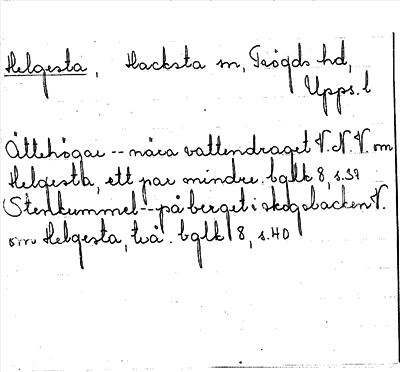 Helgesta, Hacksta sn, Trögds hd,
Upps. l
Ättehögar -- nära vattendraget V.N.V. om
Helgesta, ett par mindre. bglk 8, s.39
Stenkummel -- på berget i skogsbacken V.
om Helgesta, två. bglk 8, s.40